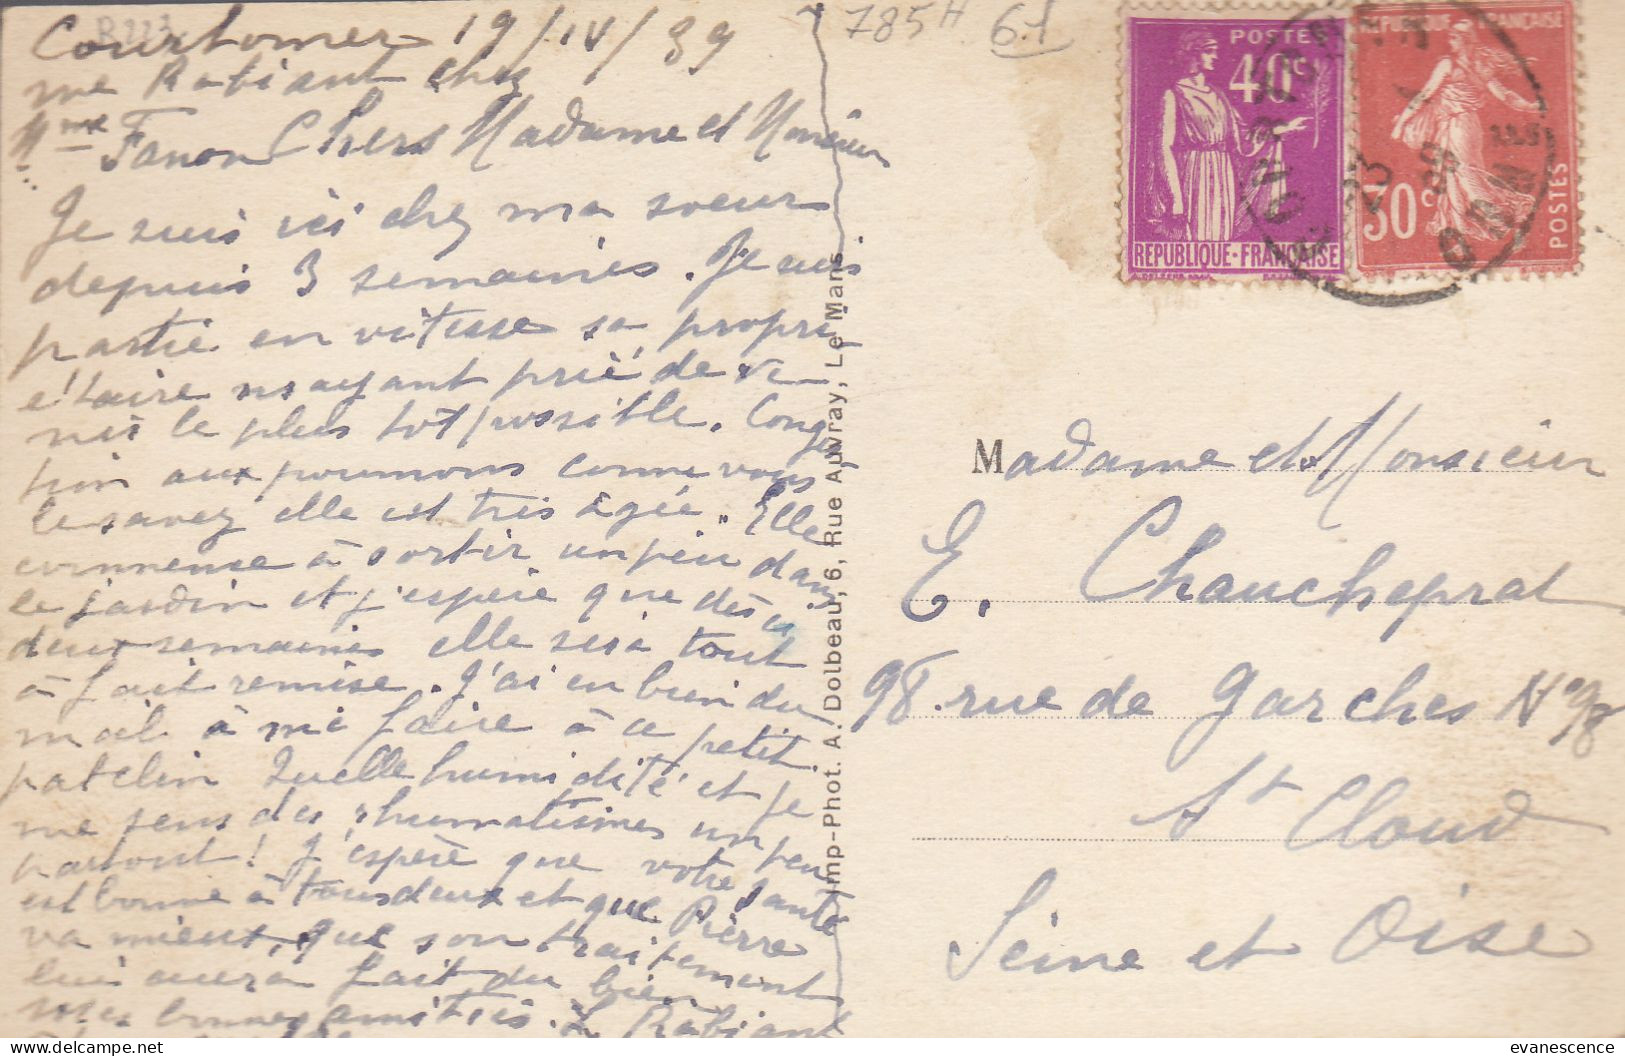 Courtomer 19/IV/39
me Rabiant chez
Mme Fanon Chers Madame et Monsieur
Je suis ici chez ma soeur
depuis 3 semaines. Je suis
partie en vitesse sa propri
étaire m'ayant prié de ve-
nir le plus tôt possible. Conges
tion aux poumons comme vous
le savez elle est très âgée. Elle
commence à sortir un peu dans
le jardin et j'espère que dès ici
deux semaines elle sera tout
à fait remise. J'ai eu bien du
mal à me faire à ce petit
patelin Quelle humidité et je
me sens des rhumatismes un peu
partout! J'espère que votre santé
est bonne à tous deux et que Pierre
va mieux, que son traitement
lui aura fait du bien
mes bonnes amitiés. L. Rabiant
Imp-Phot. A. Dolbeau, 6, Rue Auvray, Le Mans
B223
785H 61
POSTES
40c
REPUBLIQUE-FRANÇAISE
REPUBLIQUE FRANÇAISE
30c
POSTES
COURTOMER
23
39
ORNE
Madame et Monsieur
E. Chaucheprat
98 rue de Garches No 98
St Cloud
Seine et Oise
evanescence